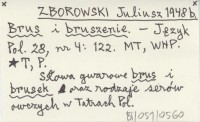 ZBOROWSKI Juliusz 1948 b.
Brus i bruszenie. – Język
Pol. 28, nr 4: 122. MT, WHP.
*T, P.
Słowa gwarowe brus i
brusek oraz rodzaje serów
owczych w Tatrach Pol.
B/051/0560